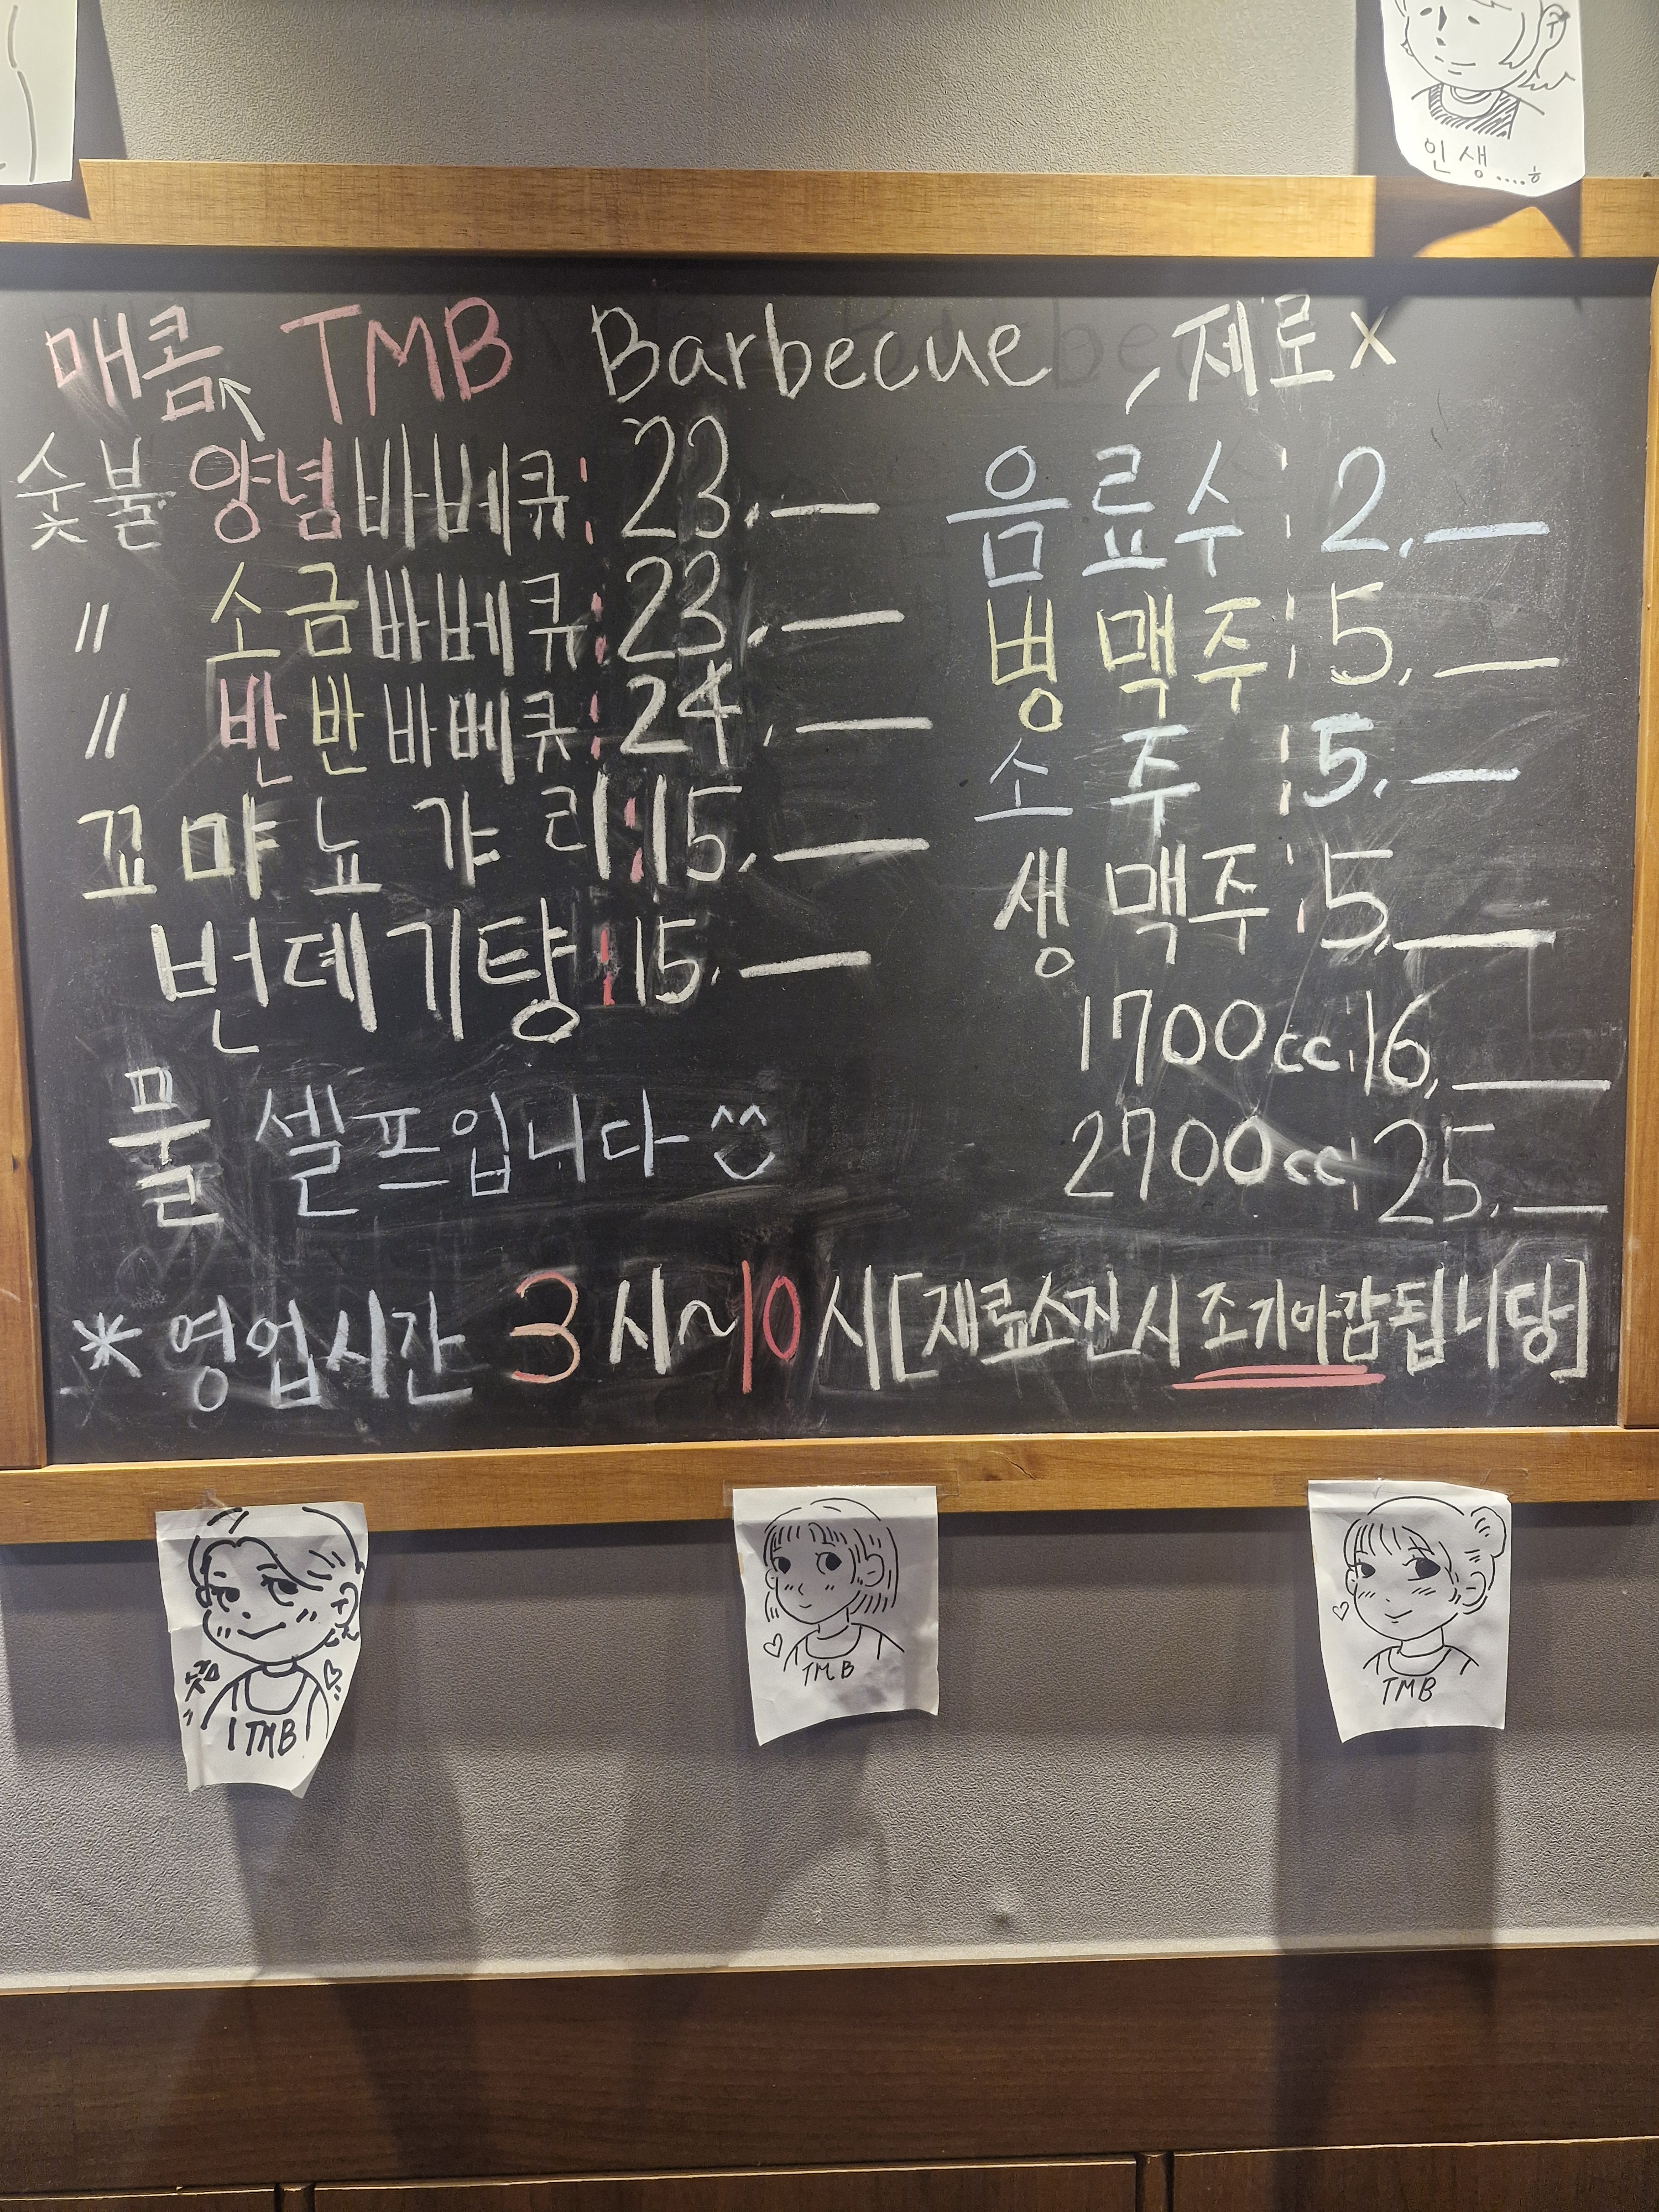 인생....ㅎ
매콤 TMB Barbecue
제로 x
숯불 양념바베큐: 23,—
〃 소금바베큐: 23,—
〃 반반바베큐: 24,—
꼬먀뇨갸리: 15,—
번데기탕: 15,—
물 셀프입니다 ^^
음료수: 2,—
병맥주: 5,—
소주: 5,—
생맥주: 5,—
1700cc: 16,—
2700cc: 25,—
* 영업시간 3시~10시[재료소진시 조기마감됩니당]
TMB
TMB
TMB